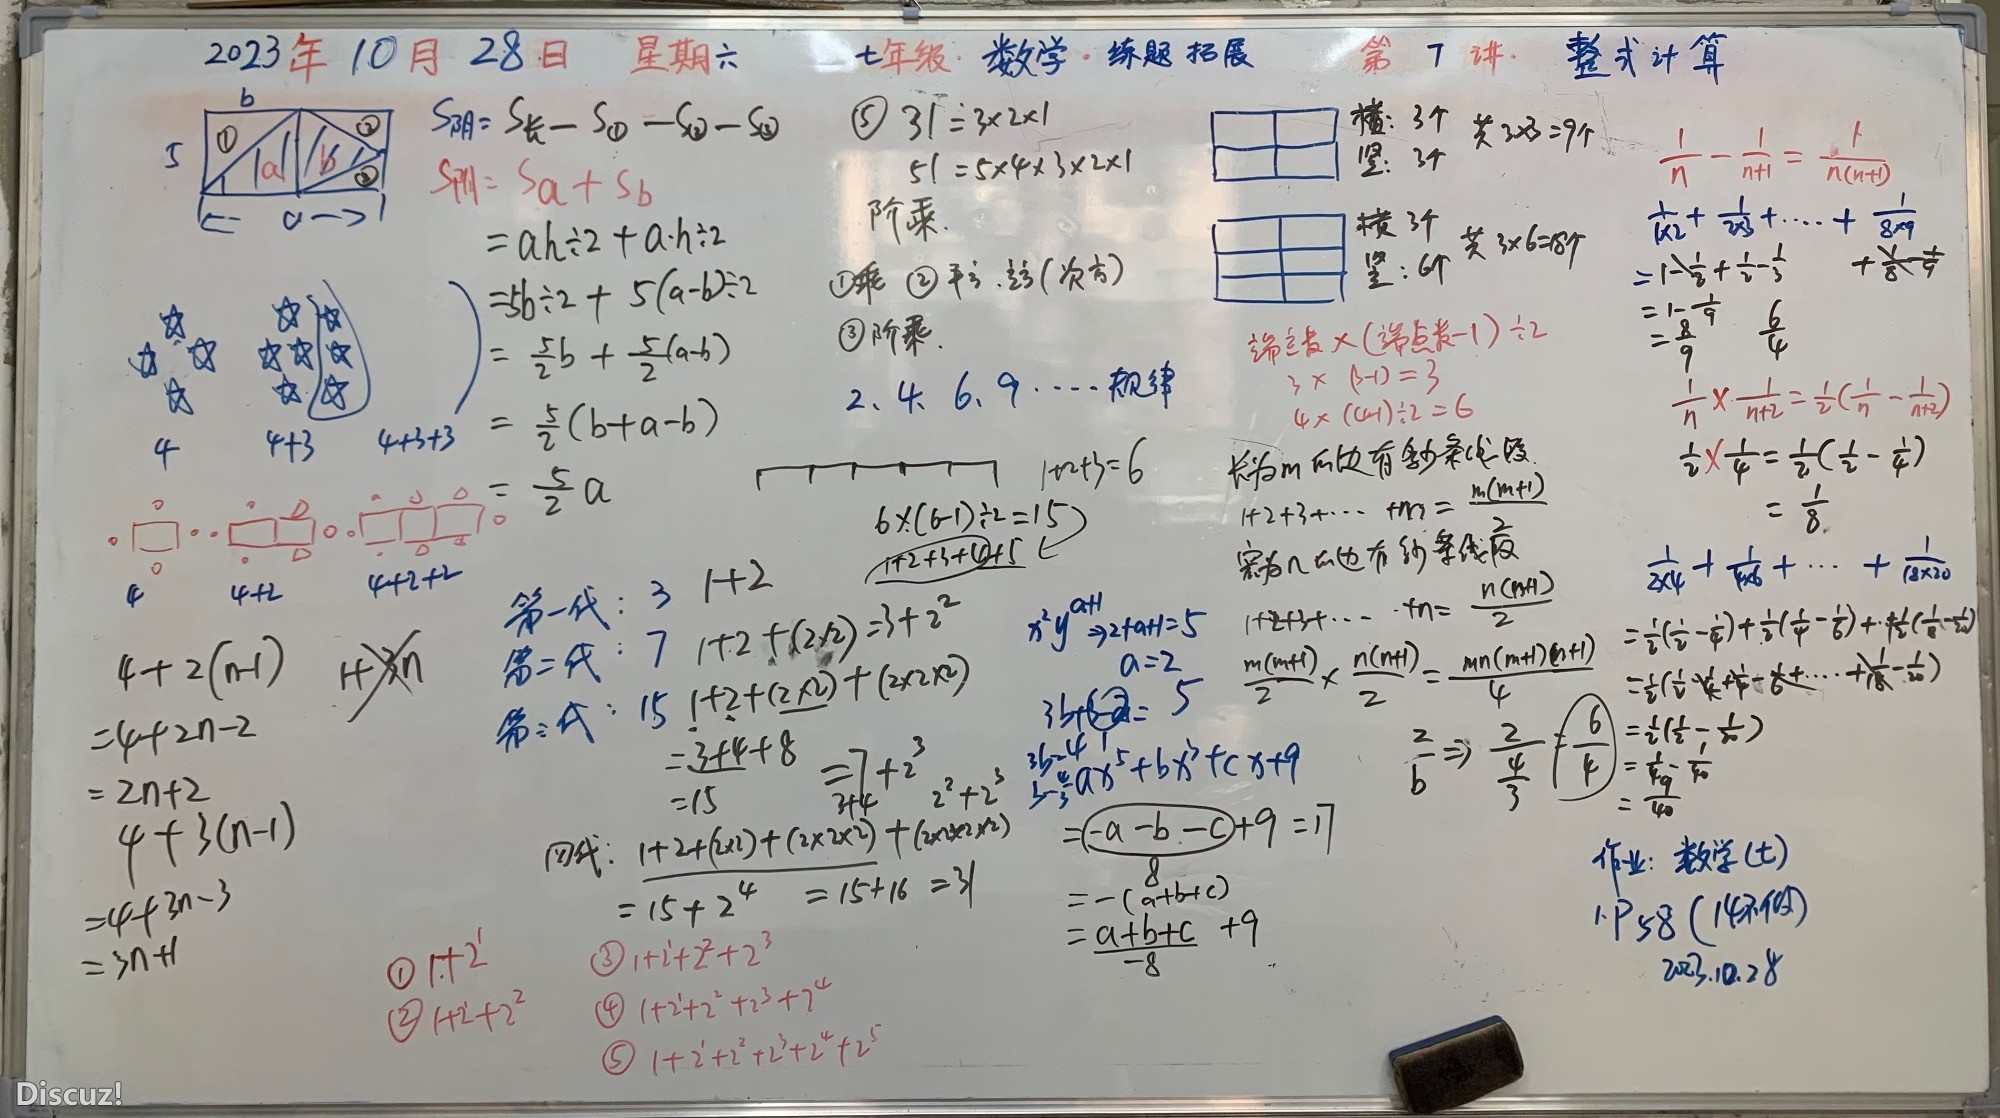 2023年10月28日 星期六 七年级·数学·练题拓展 第7讲· 整式计算
b
①
②
③
5
a
b
← a →
S阴=S长-S①-S②-S③
S阴=Sa+Sb
=ah÷2+a·h÷2
=5b÷2+5(a-b)÷2
=5/2b+5/2(a-b)
=5/2(b+a-b)
=5/2a
4 4+3 4+3+3
4 4+2 4+2+2
4+2(n-1)
=4+2n-2
=2n+2
4+3(n-1)
=4+3n-3
=3n+1
⑤ 3!=3×2×1
5!=5×4×3×2×1
阶乘.
①乘 ②平方.立方(次方)
③阶乘.
2、4、6、9····规律
1+2+3=6
6×(6-1)÷2=15
1+2+3+4+5
第一代: 3 1+2
第二代: 7 1+2+(2×2)=3+2²
第三代: 15 1+2+(2×2)+(2×2×2)
=3+4+8 =7+2³
=15 3+4 2²+2³
四代: 1+2+(2×2)+(2×2×2)+(2×2×2×2)
=15+2⁴ =15+16 =31
① 1+2¹
② 1+2¹+2²
③ 1+2¹+2²+2³
④ 1+2¹+2²+2³+2⁴
⑤ 1+2¹+2²+2³+2⁴+2⁵
x²y^(a+1) ⇒2+a+1=5
a=2
3b=4
ax⁵+bx³+cx+9
=(-a-b-c)+9=17
8
=-(a+b+c)
=(a+b+c)/-8 +9
横: 3个 共3×3=9个
竖: 3个
横 3个 共3×6=18个
竖: 6个
端点数×(端点数-1)÷2
3×(3-1)=3
4×(4-1)÷2=6
长为m的边有多少条线段
1+2+3+···+m=m(m+1)/2
宽为n的边有多少条线段
1+2+3+···+n=n(n+1)/2
m(m+1)/2×n(n+1)/2=mn(m+1)(n+1)/4
2/b⇒2/(4/3)=6/4
1/n-1/(n+1)=1/n(n+1)
1/1×2+1/2×3+····+1/8×9
=1-1/2+1/2-1/3 +1/8-1/9
=1-1/9
=8/9 6/4
1/n×1/(n+2)=1/2(1/n-1/(n+2))
1/2×1/4=1/2(1/2-1/4)
=1/8
1/2×4+1/4×6+···+1/18×20
=1/2(1/2-1/4)+1/2(1/4-1/6)+··+1/2(1/18-1/20)
=1/2(1/2-1/4+1/4-1/6+····+1/18-1/20)
=1/2(1/2-1/20)
=1/4-1/40
=9/40
作业: 数学(七)
1.P58(14不做)
2023.10.28
Discuz!